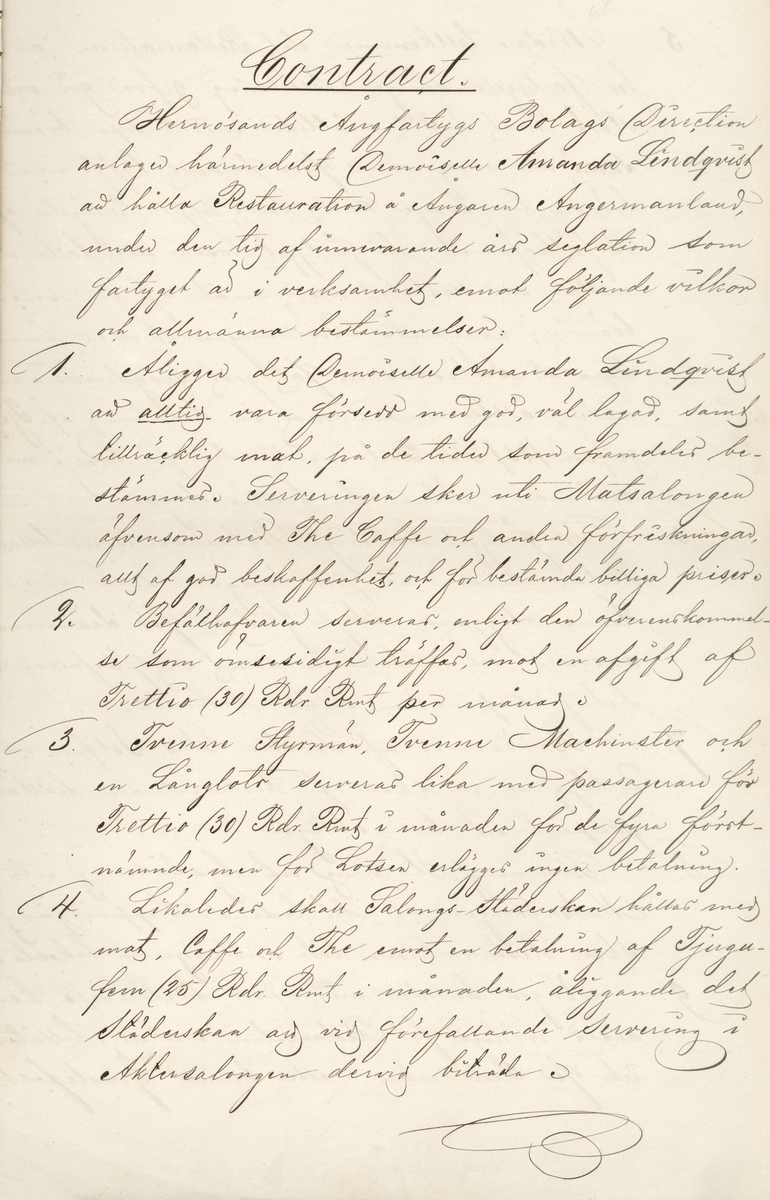 Contract.
Hernösands Ångfartygs Bolags Direction
antager härmedelst Demoiselle Amanda Lindqvist
att hålla Restauration å Ångaren Angermanland,
under den tid af innevarande års seglation som
fartyget är i verksamhet, emot följande vilkor
och allmänna bestämmelser:
1. Åligger det Demoiselle Amanda Lindqvist
att alltid vara försedd med god, väl lagad, samt
tillräcklig mat, på de tider som framdeles be-
stämmes. Serveringen sker uti Matsalongen
äfvensom med The Caffe och andra förfriskningar,
allt af god beskaffenhet, och för bestämda billiga priser.
2. Befälhafvaren serveras, enligt den öfverenskommel-
se som ömsesidigt träffas, mot en afgift af
Trettio (30) Rdr Rmt per månad.
3. Tvenne Styrmän, Tvenne Machinster och
en Långlots serveras lika med passagerare för
Trettio (30) Rdr Rmt i månaden för de fyra först-
nämnde, men för Lotsen erlägges ingen betalning.
4. Likaledes skall Salongs-Städerskan hållas med
mat, Caffe och The emot en betalning af Tjugu-
fem (25) Rdr Rmt i månaden, åliggande det
Städerskan att vid förefallande servering i
Aktersalongen dervid biträda.